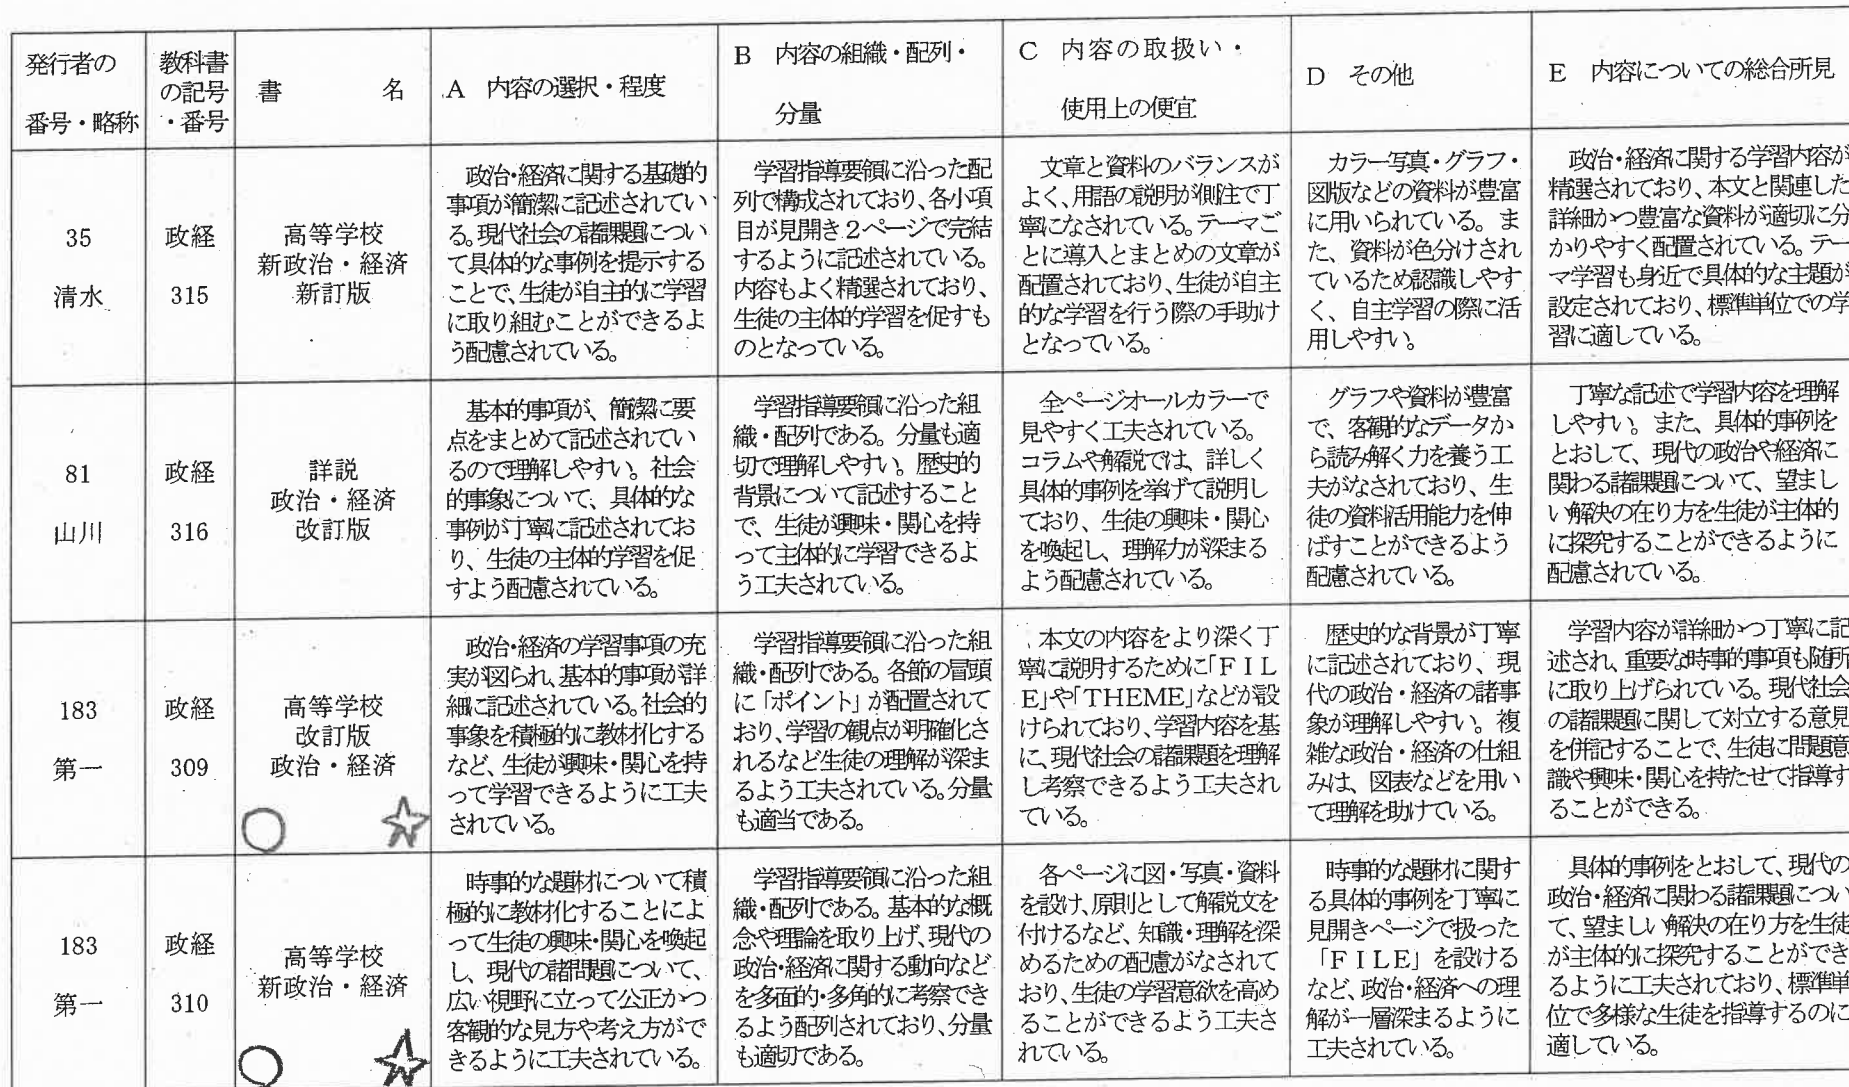 発行者の
番号・略称
教科書
の記号
・番号
書　　名
A　内容の選択・程度
B　内容の組織・配列・
分量
C　内容の取扱い・
使用上の便宜
D　その他
E　内容についての総合所見
35
清水
政経
315
高等学校
新政治・経済
新訂版
政治・経済に関する基礎的
事項が簡潔に記述されてい
る。現代社会の諸課題につい
て具体的な事例を提示する
ことで、生徒が自主的に学習
に取り組むことができるよ
う配慮されている。
学習指導要領に沿った配
列で構成されており、各小項
目が見開き2ページで完結
するように記述されている。
内容もよく精選されており、
生徒の主体的学習を促すも
のとなっている。
文章と資料のバランスが
よく、用語の説明が側注で丁
寧になされている。テーマご
とに導入とまとめの文章が
配置されており、生徒が自主
的な学習を行う際の手助け
となっている。
カラー写真・グラフ・
図版などの資料が豊富
に用いられている。ま
た、資料が色分けされ
ているため認識しやす
く、自主学習の際に活
用しやすい。
政治・経済に関する学習内容が
精選されており、本文と関連した
詳細かつ豊富な資料が適切に分
かりやすく配置されている。テー
マ学習も身近で具体的な主題が
設定されており、標準単位での学
習に適している。
81
山川
政経
316
詳説
政治・経済
改訂版
基本的事項が、簡潔に要
点をまとめて記述されてい
るので理解しやすい。社会
的事象について、具体的な
事例が丁寧に記述されてお
り、生徒の主体的学習を促
すよう配慮されている。
学習指導要領に沿った組
織・配列である。分量も適
切で理解しやすい。歴史的
背景について記述すること
で、生徒が興味・関心を持
って主体的に学習できるよ
う工夫されている。
全ページオールカラーで
見やすく工夫されている。
コラムや解説では、詳しく
具体的事例を挙げて説明し
ており、生徒の興味・関心
を喚起し、理解力が深まる
よう配慮されている。
グラフや資料が豊富
で、客観的なデータか
ら読み解く力を養う工
夫がなされており、生
徒の資料活用能力を伸
ばすことができるよう
配慮されている。
丁寧な記述で学習内容を理解
しやすい。また、具体的事例を
とおして、現代の政治や経済に
関わる諸課題について、望まし
い解決の在り方を生徒が主体的
に探究することができるように
配慮されている。
183
第一
政経
309
高等学校
改訂版
政治・経済
政治・経済の学習事項の充
実が図られ、基本的事項が詳
細に記述されている。社会的
事象を積極的に教材化する
など、生徒が興味・関心を持
って学習できるように工夫
されている。
学習指導要領に沿った組
織・配列である。各節の冒頭
に「ポイント」が配置されて
おり、学習の観点が明確化さ
れるなど生徒の理解が深ま
るよう工夫されている。分量
も適当である。
本文の内容をより深く丁
寧に説明するために「FIL
E」や「THEME」などが設
けられており、学習内容を基
に、現代社会の諸課題を理解
し考察できるよう工夫され
ている。
歴史的な背景が丁寧
に記述されており、現
代の政治・経済の諸事
象が理解しやすい。複
雑な政治・経済の仕組
みは、図表などを用い
て理解を助けている。
学習内容が詳細かつ丁寧に記
述され、重要な時事的事項も随所
に取り上げられている。現代社会
の諸課題に関して対立する意見
を併記することで、生徒に問題意
識や興味・関心を持たせて指導す
ることができる。
183
第一
政経
310
高等学校
新政治・経済
時事的な題材について積
極的に教材化することによ
って生徒の興味・関心を喚起
し、現代の諸問題について、
広い視野に立って公正かつ
客観的な見方や考え方がで
きるように工夫されている。
学習指導要領に沿った組
織・配列である。基本的な概
念や理論を取り上げ、現代の
政治・経済に関する動向など
を多面的・多角的に考察でき
るよう配列されており、分量
も適切である。
各ページに図・写真・資料
を設け、原則として解説文を
付けるなど、知識・理解を深
めるための配慮がなされて
おり、生徒の学習意欲を高め
ることができるよう工夫さ
れている。
時事的な題材に関す
る具体的事例を丁寧に
見開きページで扱った
「FILE」を設ける
など、政治・経済への理
解が一層深まるように
工夫されている。
具体的事例をとおして、現代の
政治・経済に関わる諸課題につい
て、望ましい解決の在り方を生徒
が主体的に探究することができ
るように工夫されており、標準単
位で多様な生徒を指導するのに
適している。